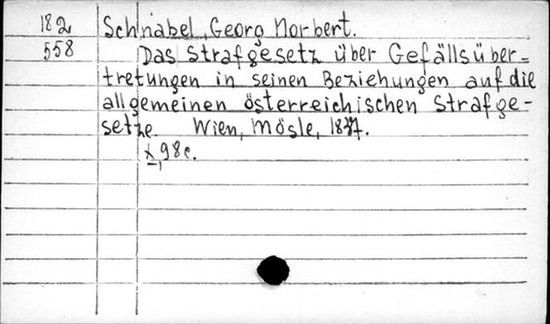 182 Schnabel, Georg Norbert.
558 Das Strafgesetz über Gefällsüber-
tretungen in seinen Beziehungen auf die
allgemeinen österreichischen Strafge-
setze. Wien, Mösle, 1837.
98 c.